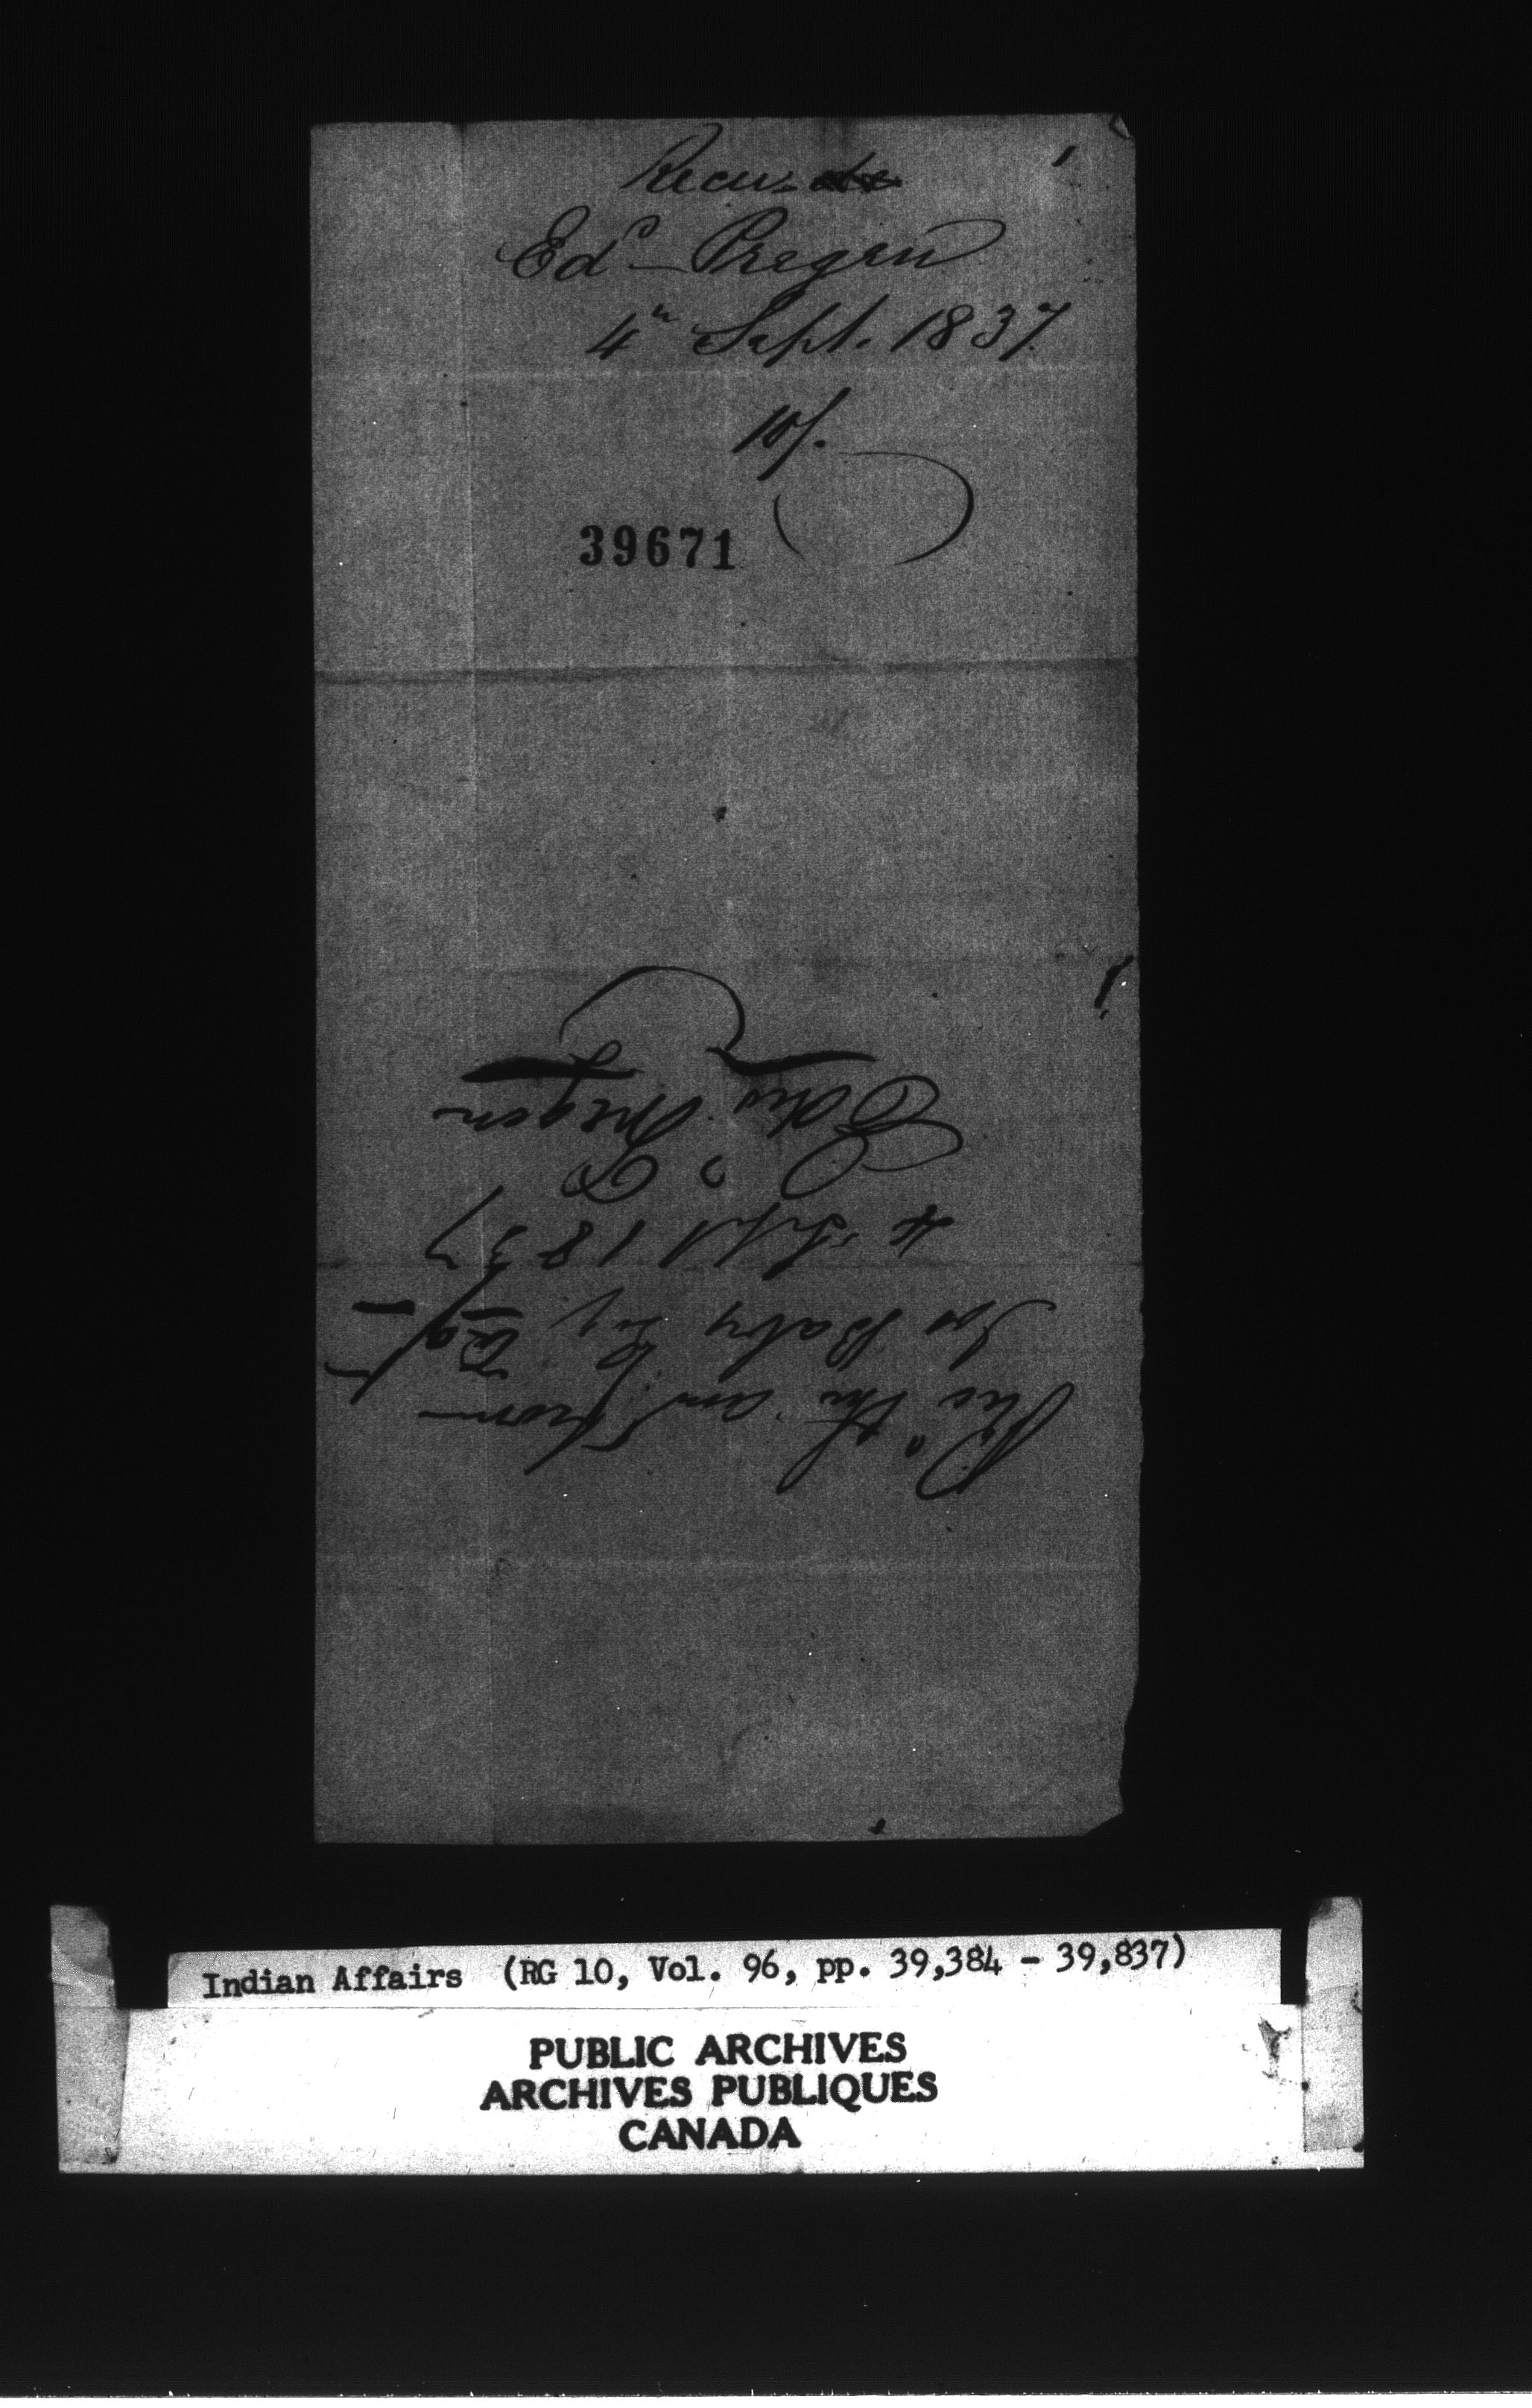 Recu de
Ed^d Pregen
4" Sept. 1837
10/.
39671
Rec^d the am^t from
Frs Baby Esq.
4 Sept 1837
Edw. Pregen
Indian Affairs (RG 10, Vol. 96, pp. 39,384 - 39,837)
PUBLIC ARCHIVES
ARCHIVES PUBLIQUES
CANADA